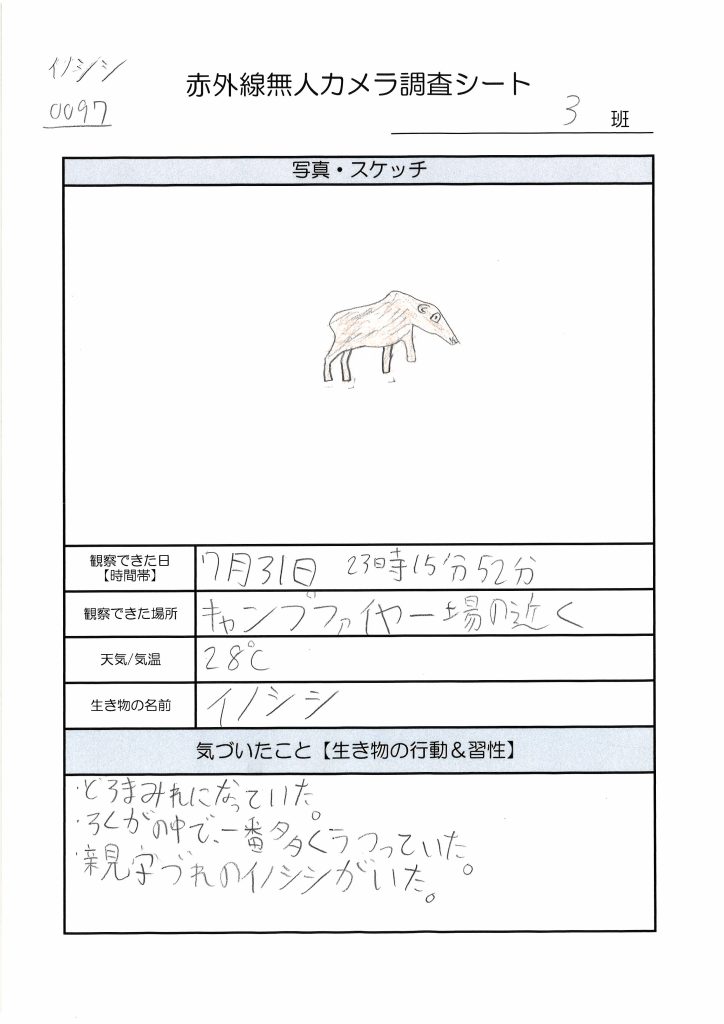 イノシシ
0097
赤外線無人カメラ調査シート
3 班
写真・スケッチ
観察できた日
【時間帯】
7月31日 23時15分52分
観察できた場所
キャンプファイヤー場の近く
天気/気温
28℃
生き物の名前
イノシシ
気づいたこと【生き物の行動&習性】
・どろまみれになっていた。
・ろくがの中で、一番多くうつっていた。
・親子づれのイノシシがいた。